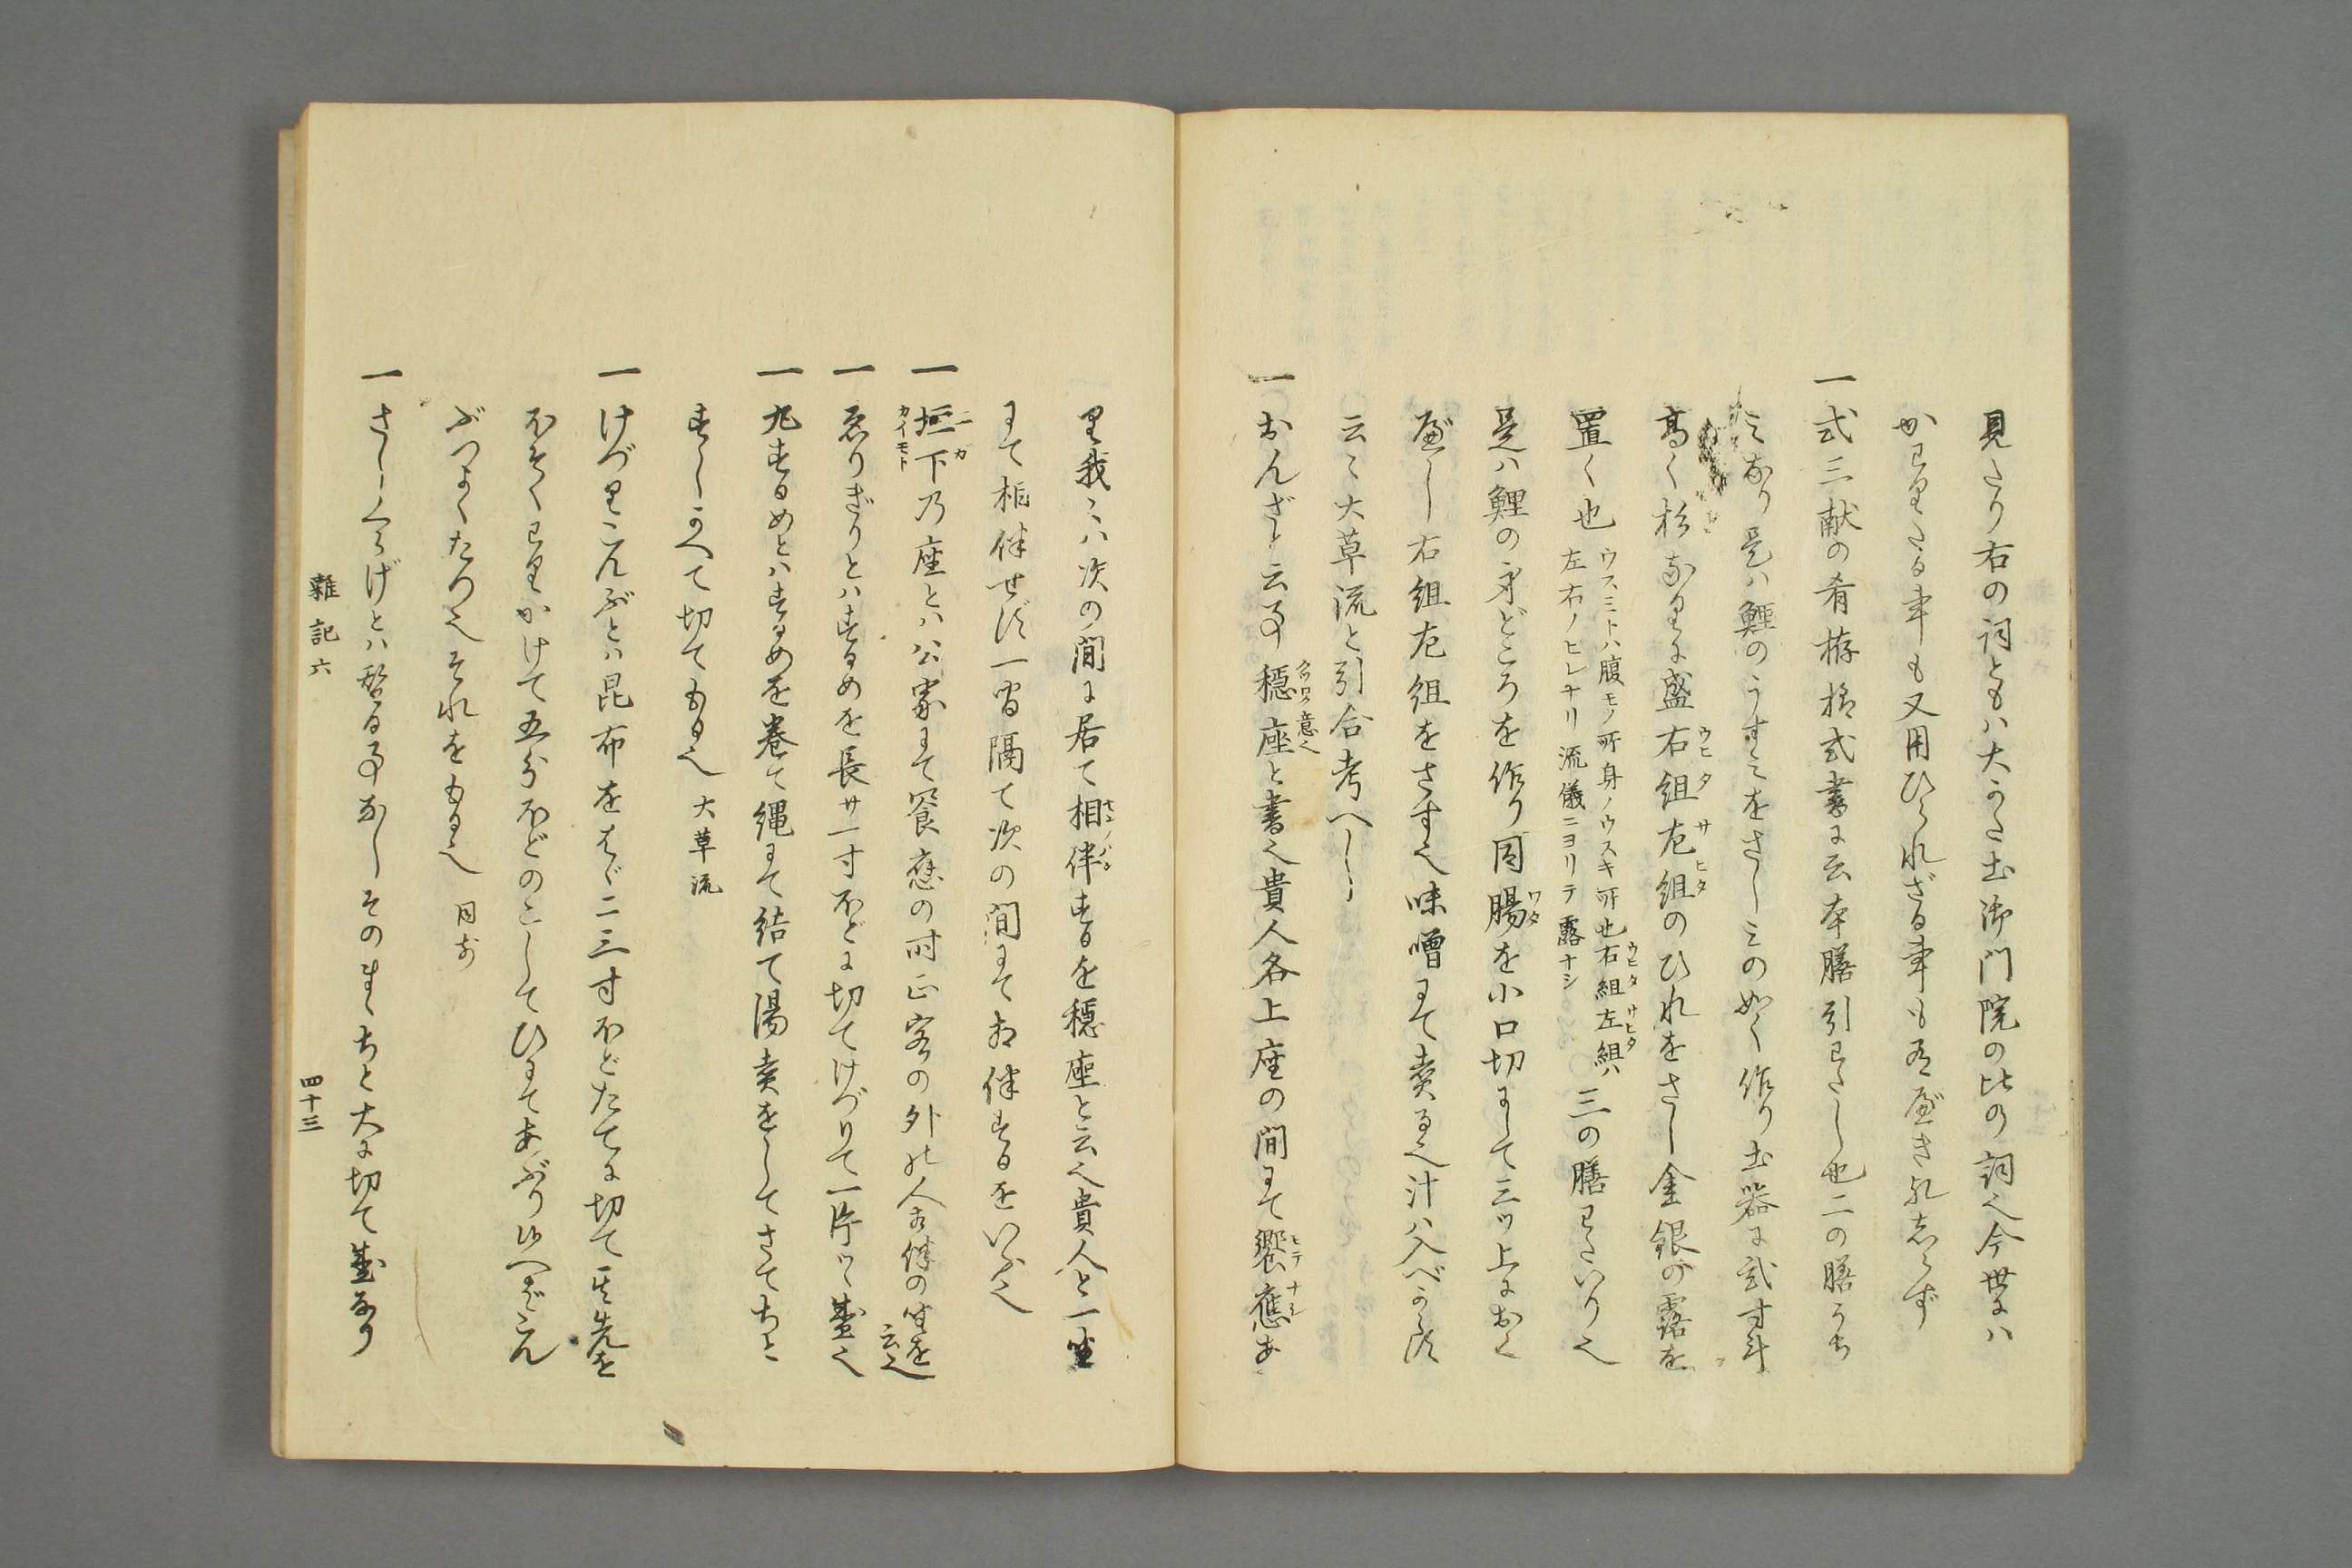 見たり右の詞ともハ大かた土御門院の比の詞也今世にハ
かわりたる事も又用ひられざる事も有べきもしらず
一式三献の肴模様式書に云本膳引わたし也二の膳うち
ミなり是ハ鯉のうすミをさしミの如く作り土器に弐寸斗
高く杉なりに盛右組左組のひれをさし金銀の露を
置く也
ウスミトハ腹モノ所身ノウスキ所也右組左組ハ
左右ノヒレナリ流儀ニヨリテ露ナシ
三の膳わたいり也
是ハ鯉の身どころを作り同腸を小口切にして三ツ上におく
べし右組左組をさす也味噌にて煮る也汁ハ入べからす
云々大草流と引合考へし
一おんざと云事穏座と書也貴人各上座の間にて饗應あ
り我ハ次の間に居て相伴するを穏座と云也貴人と一坐
にて相伴せす一間隔て次の間にて相伴するをいふ也
一垣下乃座とハ公家にて饗應の時正客の外の人相伴の坐を云也
一ゑりぎりとハするめを長サ一寸ほどに切てけづりて一片ツヽ盛也
一丸するめとハするめを巻て縄にて結て湯煮をしてさてちと
すしかへて切てもる也 大草流
一けづりこんぶとハ昆布をはゞ二三寸ほどたてに切て其先を
ほそくわりかけて五分ほどのこしてひにてあぶり候へばこん
ぶつよくたつ也それをもる也 同前
一さしくらげとハ替る事なしそのまゝちと大に切て盛なり
雜記六
四十三